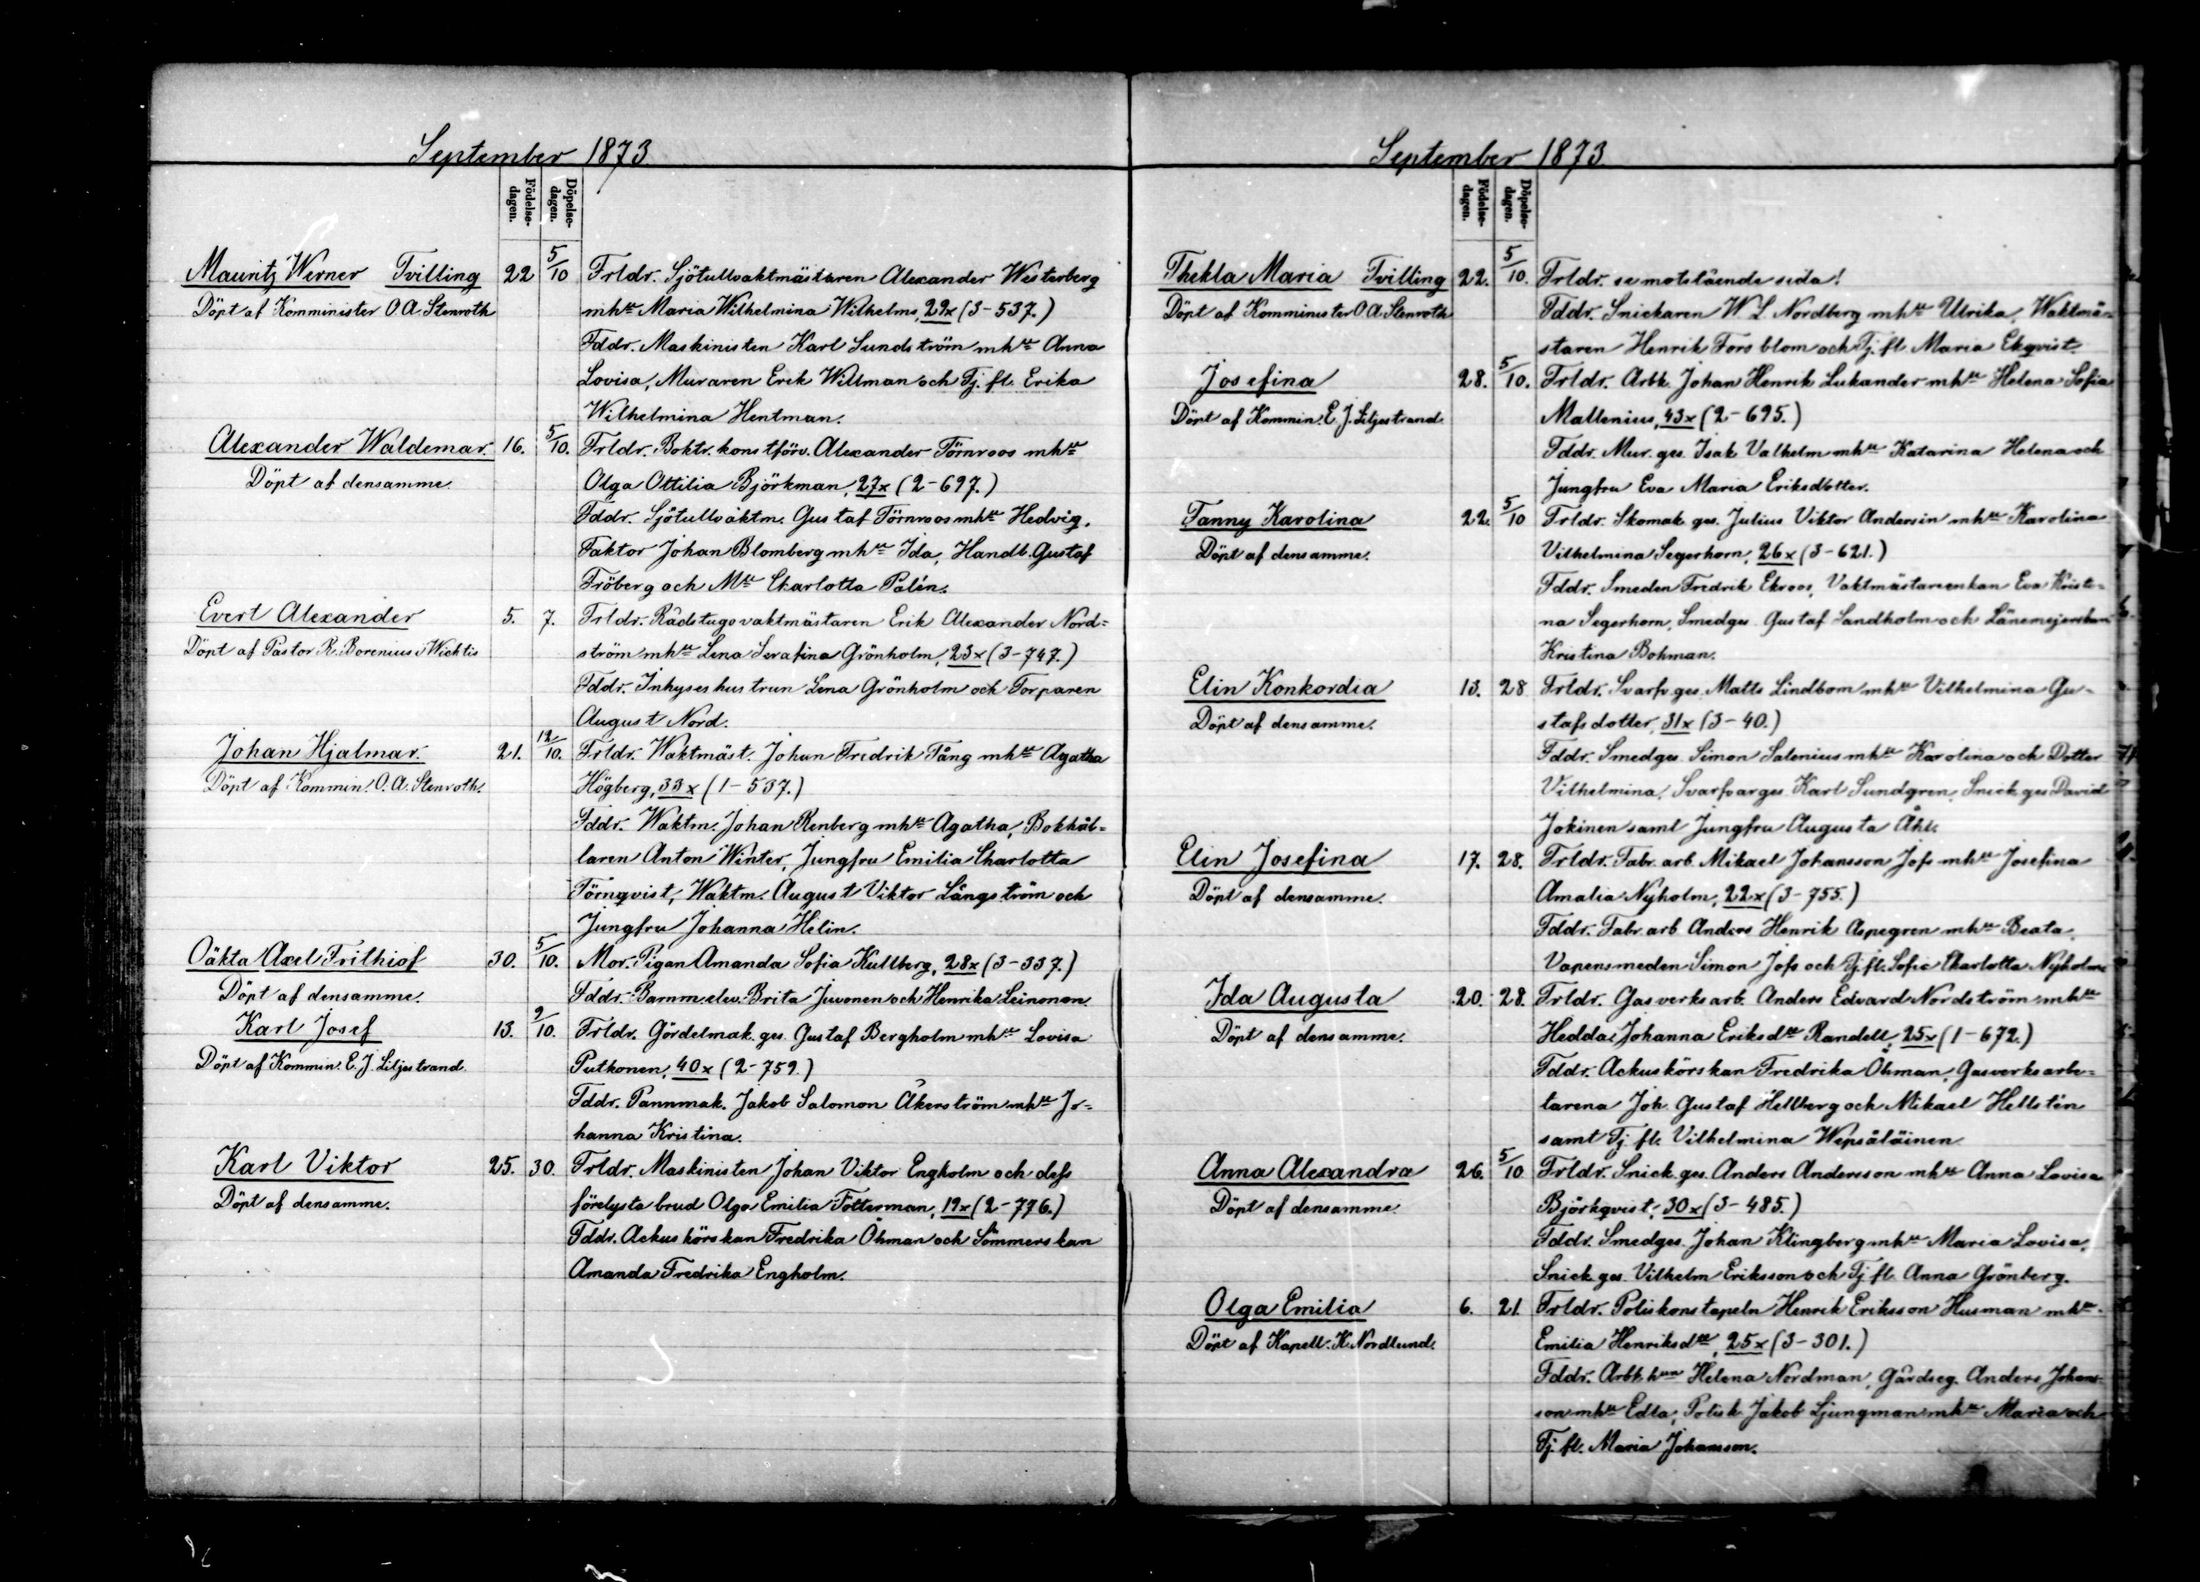 September 1873
Födelse-
dagen.
Döpelse-
dagen.
Mauritz Werner Tvilling 22 5/10 Frldr. Sjötullvaktmästaren Alexander Westerberg
Döpt af Komminister O. A. Stenroth mhu Maria Wilhelmina Wilhelms, 22x (3-537.)
Fddr. Maskinisten Karl Sundström mhu Anna
Lovisa, Muraren Erik Willman och Tj. fl. Erika
Wilhelmina Hentman.
Alexander Waldemar. 16. 5/10. Frldr. Boktr. konstförv. Alexander Törnroos mhu
Döpt af densamme. Olga Ottilia Björkman, 27x (2-697.)
Fddr. Sjötullvaktm. Gustaf Törnroos mhu Hedvig,
Faktor Johan Blomberg mhu Ida, Handl. Gustaf
Fröberg och Mll Charlotta Palén.
Evert Alexander 5. 7. Frldr. Rådstugovaktmästaren Erik Alexander Nord=
Döpt af Pastor R. Borenius i Wichtis ström mhu Lena Serafina Grönholm, 23x (3-747.)
Fddr. Inhyseshustrun Lena Grönholm och Torparen
August Nord.
Johan Hjalmar. 21. 12/10. Frldr. Waktmäst. Johan Fredrik Tång mhu Agatha
Döpt af Kommin. O. A. Stenroth. Högberg, 33x (1-537.)
Fddr. Waktm. Johan Renberg mhu Agatha, Bokhål=
laren Anton Winter, Jungfru Emilia Charlotta
Törnqvist, Waktm. August Viktor Långström och
Jungfru Johanna Helin.
Oäkta Axel Frithiof 30. 5/10. Mor. Pigan Amanda Sofia Kullberg, 28x (3-337.)
Döpt af densamme. Fddr. Barnm. elev. Brita Juvonen och Henrika Leinonen
Karl Josef 13. 2/10. Frldr. Gördelmak. ges. Gustaf Bergholm mhu Lovisa
Döpt af Kommin. E. J. Liljestrand. Putkonen, 40x (2-759.)
Fddr. Pannmak. Jakob Salomon Åkerström mhu Jo=
hanna Kristina.
Karl Viktor 25. 30. Frldr. Maskinisten Johan Viktor Engholm och dess
Döpt af densamme. förelysta brud Olga Emilia Fötterman, 19x (2-776.)
Fddr. Ackuskörskan Fredrika Öhman och Sömmerskan
Amanda Fredrika Engholm.
September 1873
Födelse-
dagen.
Döpelse-
dagen.
Thekla Maria Tvilling 22. 5/10. Frldr. se motstående sida!
Döpt af Komminister O. A. Stenroth Fddr. Snickaren W. L. Nordberg mhu Ulrika, Waktmä=
staren Henrik Forsblom och Tj. fl. Maria Ekqvist.
Josefina 28. 5/10. Frldr. Arbk. Johan Henrik Lukander mhu Helena Sofia
Döpt af Kommin. E. J. Liljestrand Mallenius, 43x (2-695.)
Fddr. Mur. ges. Isak Valhelm mhu Katarina Helena och
Jungfru Eva Maria Eriksdotter.
Fanny Karolina 22. 5/10 Frldr. Skomak. ges. Julius Viktor Andersin mhu Karolina
Döpt af densamme. Vilhelmina Segerhorn, 26x (3-621.)
Fddr. Smeden Fredrik Ekroos, Vaktmästareenkan Eva Kristi=
na Segerhorn, Smedges. Gustaf Sandholm och
Kristina Bohman.
Elin Konkordia 13. 28 Frldr. Svarfv. ges. Matts Lindbom mhu Vilhelmina Gu=
Döpt af densamme. stafsdotter, 31x (3-40.)
Fddr. Smedges. Simon Salenius mhu Karolina och Dotter
Vilhelmina, Svarfvarges. Karl Sundgren, Snick. ges David
Jokinen samt Jungfru Augusta Åhl.
Elin Josefina 17. 28. Frldr. Fabr. arb. Mikael Johansson Jofs mhu Josefina
Döpt af densamme. Amalia Nyholm, 22x (3-755.)
Fddr. Fabr. arb. Anders Henrik Aspegren mhu Beata,
Vapensmeden Simon Jofs och Tj. fl. Sofia Charlotta Nyholm
Ida Augusta 20. 28. Frldr. Gasverksarb. Anders Edvard Nordström mhu
Döpt af densamme. Hedda Johanna Eriksdtr Randell, 25x (1-672.)
Fddr. Ackuskörskan Fredrika Öhman, Gasverksarbe=
tarena Joh. Gustaf Hellberg och Mikael Hellstén
samt Tj. fl. Vilhelmina Wepsäläinen
Anna Alexandra 26. 5/10 Frldr. Snick. ges. Anders Andersson mhu Anna Lovisa
Döpt af densamme. Björkqvist, 30x (3-485.)
Fddr. Smedges. Johan Klingberg mhu Maria Lovisa,
Snick. ges. Vilhelm Eriksson och Tj. fl. Anna Grönberg.
Olga Emilia 6. 21. Frldr. Poliskonstapeln Henrik Eriksson Husman mhu
Döpt af Kapell. K. Nordlund. Emilia Henriksdtr, 25x (3-301.)
Fddr. Arbk. hun Helena Nordman, Gårdseg. Anders Johans=
son mhu Edla, Polisk. Jakob Ljungman mhu Maria och
Tj. fl. Maria Johansson.